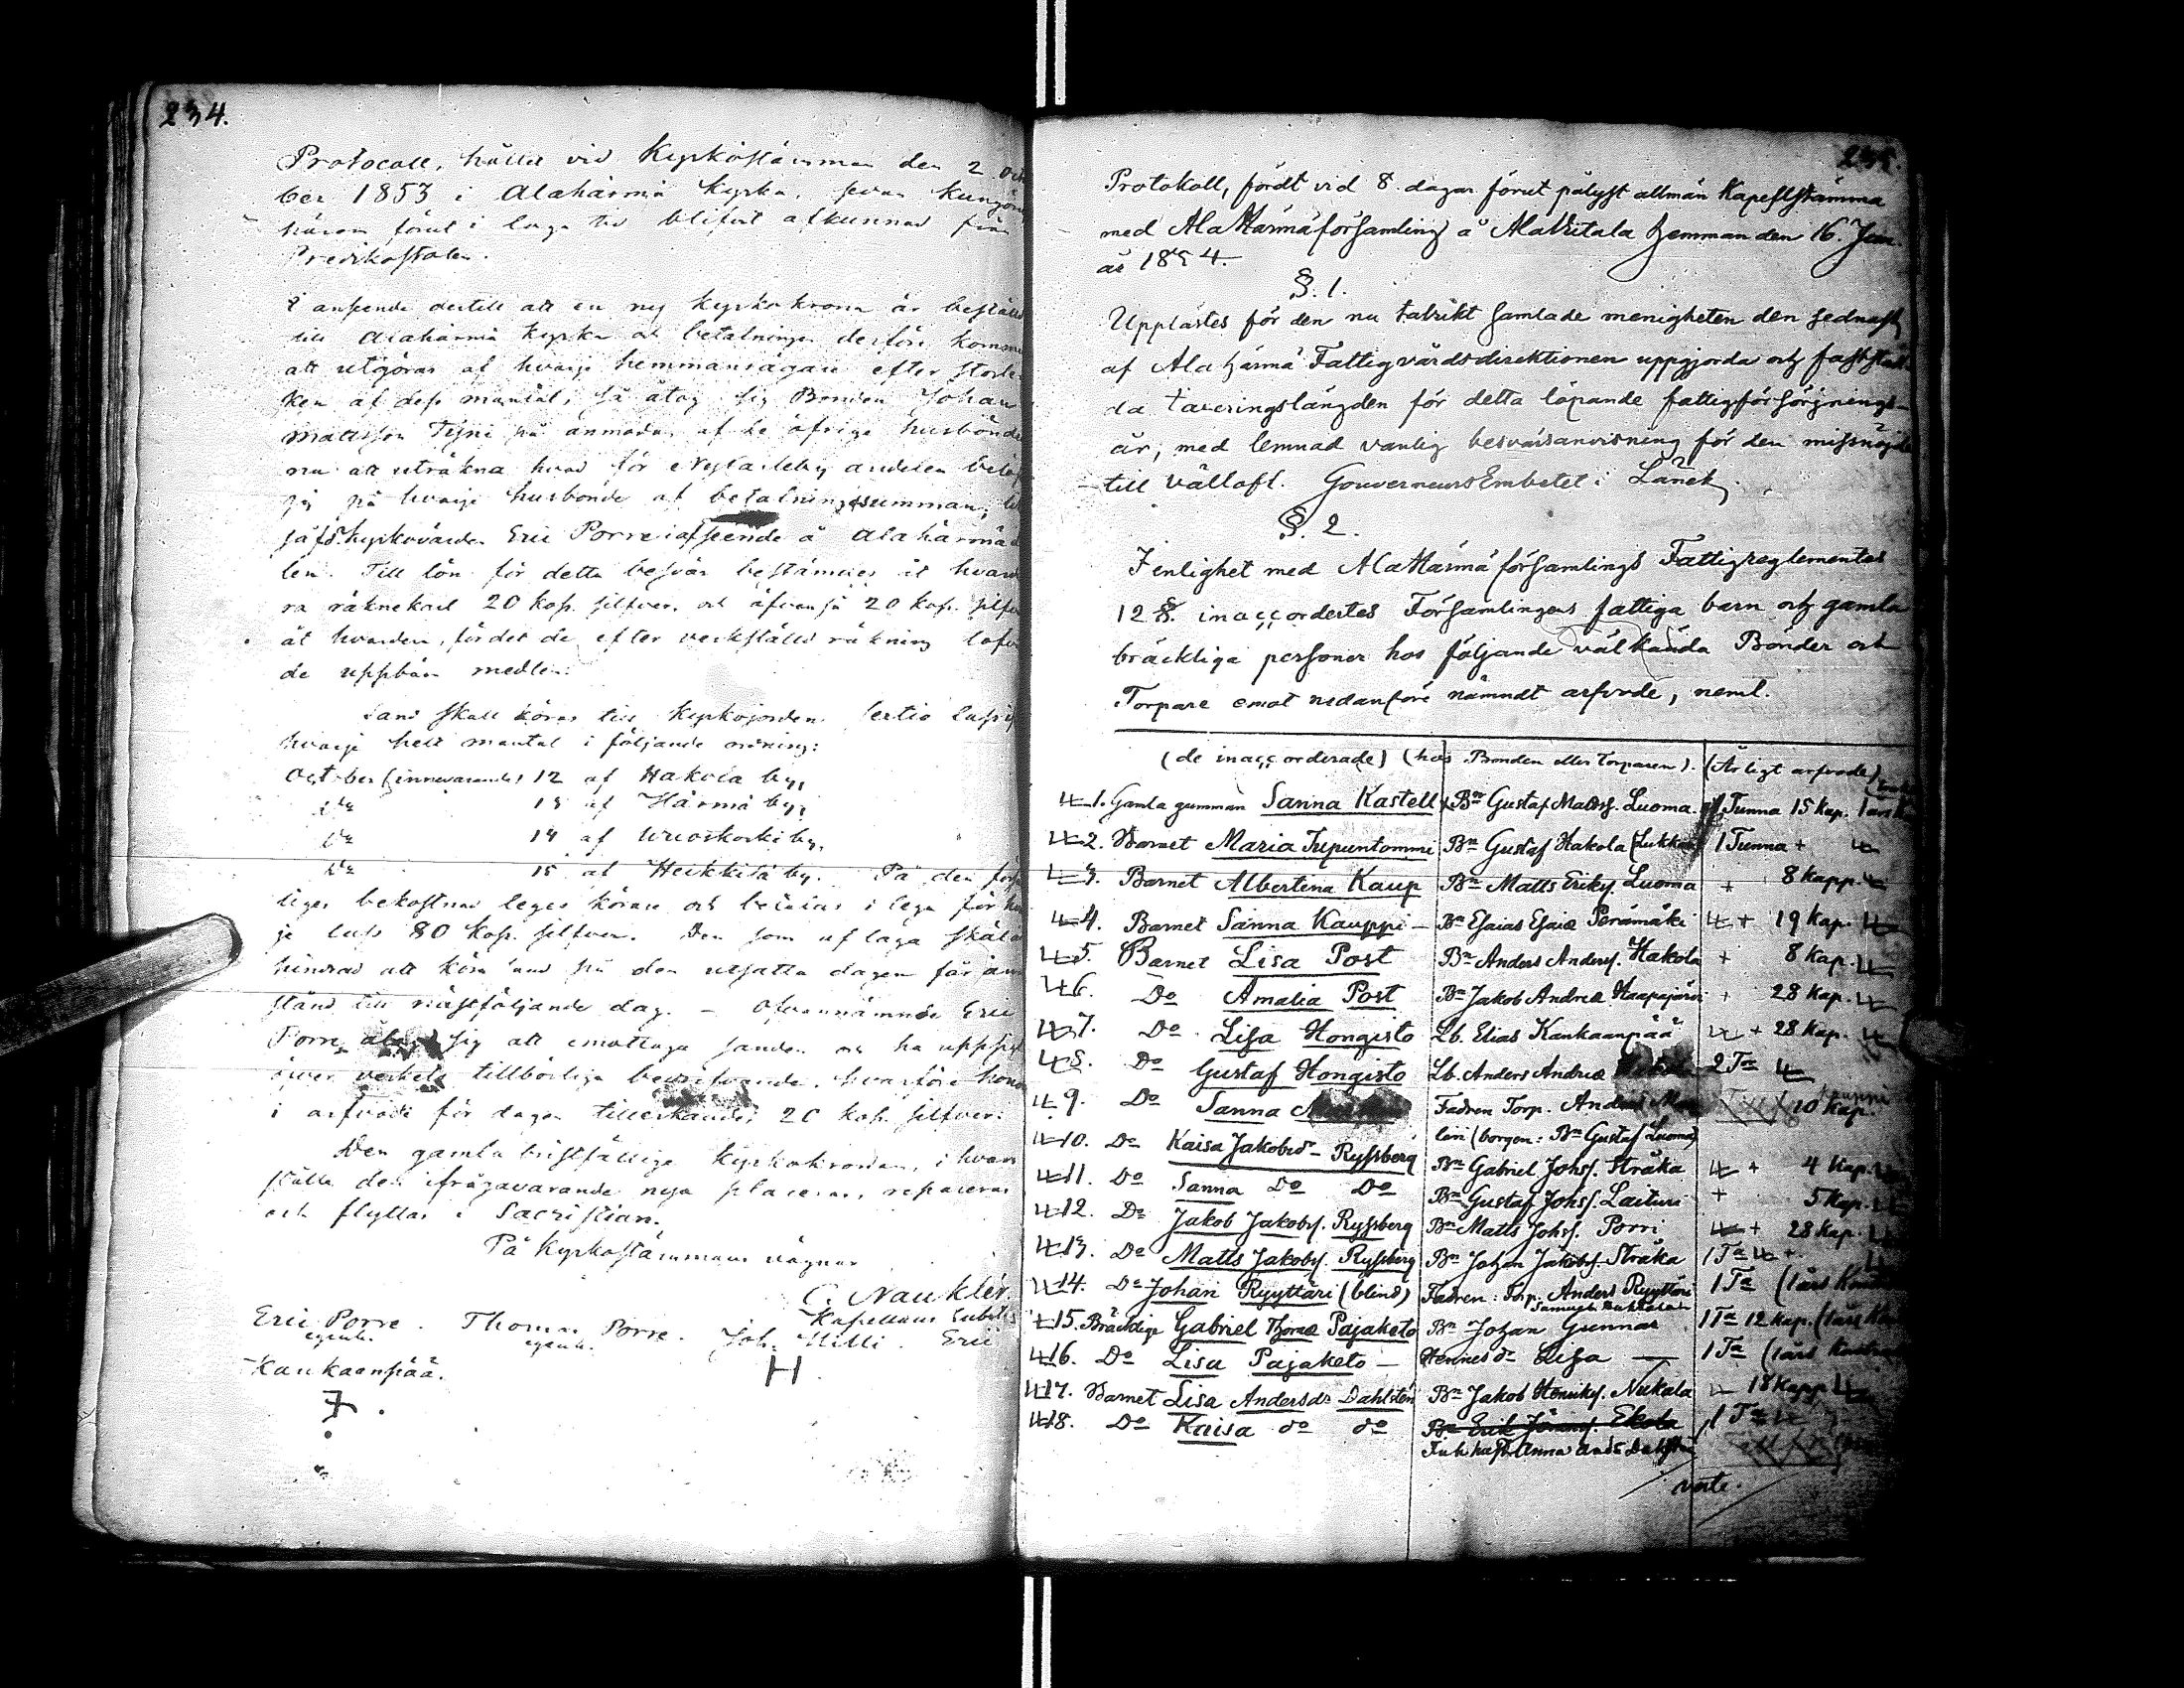 234.
Protocoll, hållet vid Kyrkostämman den 2 Octo
ber 1853 i Alahärmä Kyrka, sedan kungör
härom förut i laga tid blifvit afkunnad från
Predikostolen.
I anseende dertill att en ny Kyrkokrona är beställd
till Alahärmä Kyrka och betalningen derföre komme
att utgöras af hvarje hemmansägare efter storle-
ken af dess mantal, så åtog sig Bonden Johan
Mattsson Tyni på anmodan af de öfrige husbönde
na att uträkna hvad för Nykarleby andelen belö
på hvarje husbonde af betalningssumman,
Kyrkovärden Eric Porre i afseende å Alahärmä
len. Till lön för detta besvär bestämdes åt hvar
ra räknekarl 20 kop. silfver, och äfvenså 20 kop. silf
åt hvardera, för det de efter verkställd räkning lofva
de uppbära medlen.
Sand skall köras till Kyrkojorden lass
hvarje helt mantal i följande ordning:
October (innevarande) 12 af Hakola by,
do 13 af Härmä by,
do 14 af Wuoskoski by,
do 15 af Heikkilä by. På den förs
liges bekostnad leges körare och betalas i lega för hv
je lass 80 kop. silfver. Den som af laga skäl
hindrad att köra sand på den utsatta dagen får an
stånd till nästföljande dag. – Ofvannämnde Eric
Porre åtog sig att emottaga sanden och ha uppsigt
öfver verkets tillbörliga bedrifvande, hvarföre honom
i arfvode för dagen tillerkändes 20 kop. silfver.
Den gamla bristfälliga Kyrkokronan, i hvars
ställe den ifrågavarande nya placeras, repareras
och flyttas i Sacristian.
På Kyrkostämmans vägnar
C. Nauklér.
Kapellans
Eric Porre. Thomas Porre. Joh. Hilli. Eric
egenh. egenh. H
Kaukaanpää.
235.
Protokoll, fördt vid 8. dagar förut pålyst allmän Kapellstämma
med AlaHärmä församling å AlaViitala hemman den 16. Jan.
år 1854.
§. 1.
Upplästes för den nu talrikt samlade menigheten den sednast
af Alahärmä Fattigvårdsdirektionen uppgjorda och faststäl
da taxeringslängden för detta löpande fattigförsörjnings-
år, med lemnad vanlig besvärsanvisning för den missnöjde
till vällofl. GouverneursEmbetet i Länet.
§. 2.
I enlighet med AlaHärmä församlings Fattigreglementes
12 §. inaccordertes Församlingens fattiga barn och gamla
bräckliga personer hos följande välkända Bönder och
Torpare emot nedanföre nämndt arfvode, neml.
(de inaccorderade) (hos Bonden eller Torparen). (Årligt arfvode)
1. Gamla gumman Sanna Kastell Bn Gustaf Mattss. Luoma. 1 Tunna 15 kap.
2. Barnet Maria Tupuntommi Bn Gustaf Hakola 1 Tunna +
3. Barnet Albertina Kaup Bn Matts Eriks. Luoma + 8 kapp.
4. Barnet Sanna Kauppi – Bn Esaias Esaiæ Perämäki + 19 kap.
5. Barnet Lisa Post Bn Anders Anders. Hakola + 8 kap.
6. Do Amalia Post Bn Jakob Andreæ Haapajärvi + 28 kap.
7. Do Lisa Hongisto Lb. Elias Kankaanpää + 28 kap.
8. Do Gustaf Hongisto Lb. Anders Andreæ 2 Ta
9. Do Sanna Fadren Torp. Anders 10 kap.
(borgen: Bn Gustaf Luoma)
10. Do Kaisa Jakobsdr Ryssberg Bn Gabriel Johss. Sträka + 4 kap.
11. Do Sanna Do Do Bn Gustaf Johss. Laituri + 5 kap.
12. Do Jakob Jakobs. Ryssberg Bn Matts Johss. Porri + 28 kap.
13. Do Matts Jakobs. Ryssberg Bn Johan Jakobs. Sträka 1 Ta +
14. Do Johan Ryyttäri (blind) Fadren: Torp. Anders Ryyttäri 1 Ta (1 års
15. Bräcklige Gabriel Thomæ Pajaketo Bn Johan Gunnar 1 Ta 12 kap. (1 års
16. Do Lisa Pajaketo – Hennes dr Lisa — 1 Ta (1 års
17. Barnet Lisa Andersdr Dahlsten Bn Jakob Henriks. Nukala 18 kapp
18. Do Kaisa do do Bn Erik Ekola 1 Ta
Anna Andsdr
verte.